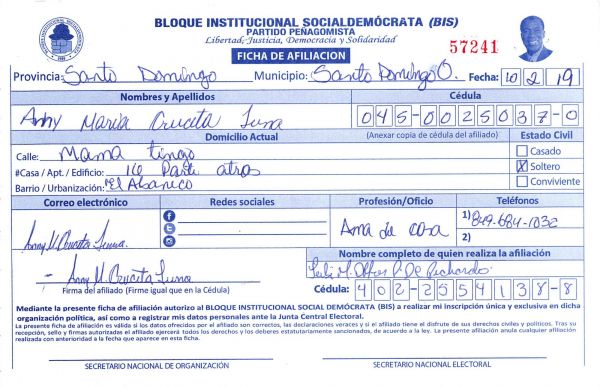 BLOQUE INSTITUCIONAL SOCIALDEMÓCRATA (BIS)
PARTIDO PEÑAGOMISTA
Libertad, Justicia, Democracia y Solidaridad
57241
FICHA DE AFILIACION
Provincia: Santo Domingo Municipio: Santo Domingo O. Fecha: 10 2 19
Nombres y Apellidos Cédula
Anny Maria Cruceta Luna 045-0025037-0
Domicilio Actual (Anexar copia de cédula del afiliado) Estado Civil
Calle: Mama tingo Casado
#Casa / Apt. / Edificio: 16 Parte atras X Soltero
Barrio / Urbanización: El Abanico Conviviente
Correo electrónico Redes sociales Profesión/Oficio Teléfonos
Ama de casa 1) 849-684-1032
2)
Anny M. Cruceta Luna Nombre completo de quien realiza la afiliación
Anny M. Cruceta Luna M. De Pichardo
Firma del afiliado (Firme igual que en la Cédula) Cédula: 402-2554138-8
Mediante la presente ficha de afiliación autorizo al BLOQUE INSTITUCIONAL SOCIAL DEMÓCRATA (BIS) a realizar mi inscripción única y exclusiva en dicha
organización política, así como a registrar mis datos personales ante la Junta Central Electoral.
La presente ficha de afiliación es válida si los datos ofrecidos por el afiliado son correctos, las declaraciones veraces y si el afiliado tiene el disfrute de sus derechos civiles y políticos. Tras su
recepción, sello y firmas autorizadas el afiliado ejercerá todos los derechos y los deberes estatutariamente sancionados, de acuerdo a la ley. La presente afiliación anula cualquier afiliación
realizada con anterioridad a la fecha que aparece en esta ficha.
SECRETARIO NACIONAL DE ORGANIZACIÓN SECRETARIO NACIONAL ELECTORAL